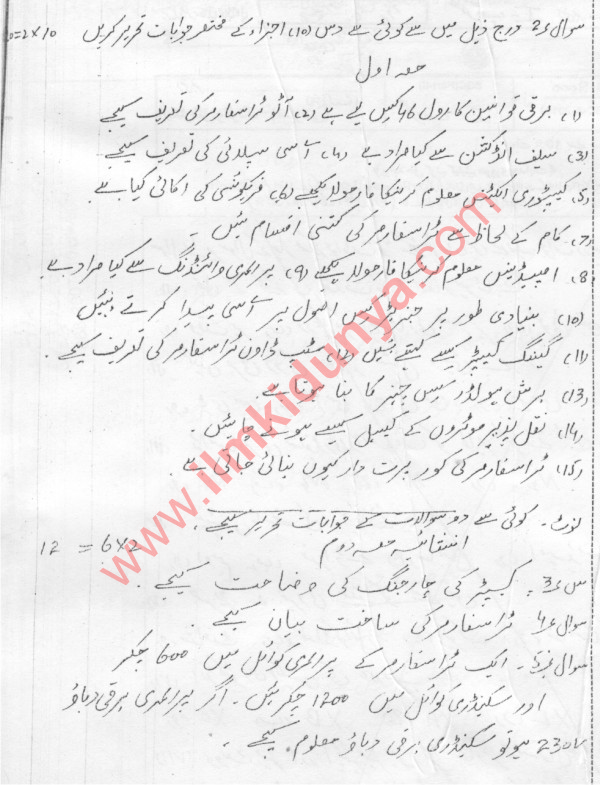 سوال ع2 درج ذیل میں سے کوئی سے دس (10) اجزاء کے مختصر جوابات تحریر کریں 10×2=
حصہ اول
(1) برقی قوانین کا رول 46 کیس لیے ہے (2) آٹو ٹرانسفارمر کی تعریف کیجیے
(3) سیلف انڈکشن سے کیا مراد ہے (4) اے سی سپلائی کی تعریف کیجیے
(5) کپیسٹوری ایکٹینس معلوم کرنیکا فارمولا لکھیے (6) فریکوئنسی کی اکائی کیا ہے
(7) کام کے لحاظ سے ٹرانسفارمر کی کتنی اقسام ہیں ۔
(8) امپیڈینس معلوم کرنیکا فارمولا لکھیے (9) پرائمری وائنڈنگ سے کیا مراد ہے
(10) بنیادی طور پر جنریٹر کس اصول پر اے سی پیدا کرتے ہیں
(11) گینگ کپیسٹر کسے کہتے ہیں (12) سٹیپ ڈاؤن ٹرانسفارمر کی تعریف کیجیے ۔
(13) برش ہولڈر کس چیز کا بنا ہوتا ہے ۔
(14) نقل پزیر موٹروں کے کیبل کیسے ہونے چاہئیں ۔
(15) ٹرانسفارمر کی کور پرت دار کیوں بنائی جاتی ہے
نوٹ ۔ کوئی سے دو سوالات کے جوابات تحریر کیجیے ۔
انشائیہ حصہ دوم 6×2 = 12
س ع3 ۔ کپیسٹر کی چارجنگ کی وضاحت کیجیے ۔
سوال ع4 ٹرانسفارمر کی ساخت بیان کیجیے ۔
سوال نمبر5 ۔ ایک ٹرانسفارمر کے پرائمری کوائل میں 600 چکر
اور سکینڈری کوائل میں 1200 چکر ہیں ۔ اگر پرائمری برقی دباؤ
230V ہو تو سکینڈری برقی دباؤ معلوم کیجیے ۔
www.ilmkidunya.com